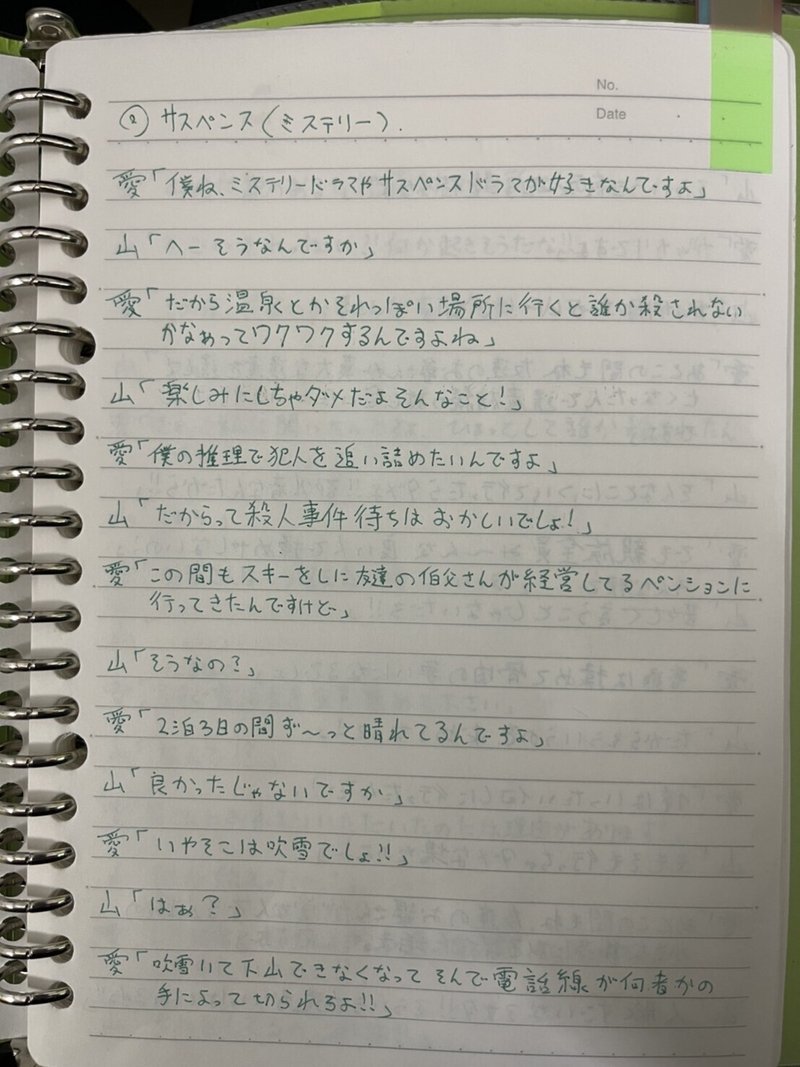 No.
Date
② サスペンス(ミステリー).
愛「僕ね、ミステリードラマやサスペンスドラマが好きなんですよ」
山「へーそうなんですか」
愛「だから温泉とかそれっぽい場所に行くと誰か殺されない
かなぁってワクワクするんですよね」
山「楽しみにしちゃダメだよそんなこと!」
愛「僕の推理で犯人を追い詰めたいんですよ」
山「だからって殺人事件待ちはおかしいでしょ!」
愛「この間もスキーをしに友達の伯父さんが経営してるペンションに
行ってきたんですけど」
山「そうなの?」
愛「2泊3日の間ず〜っと晴れてるんですよ」
山「良かったじゃないですか」
愛「いやそこは吹雪でしょ!!」
山「はぁ?」
愛「吹雪いて下山できなくなってそんで電話線が何者かの
手によって切られろよ!!」